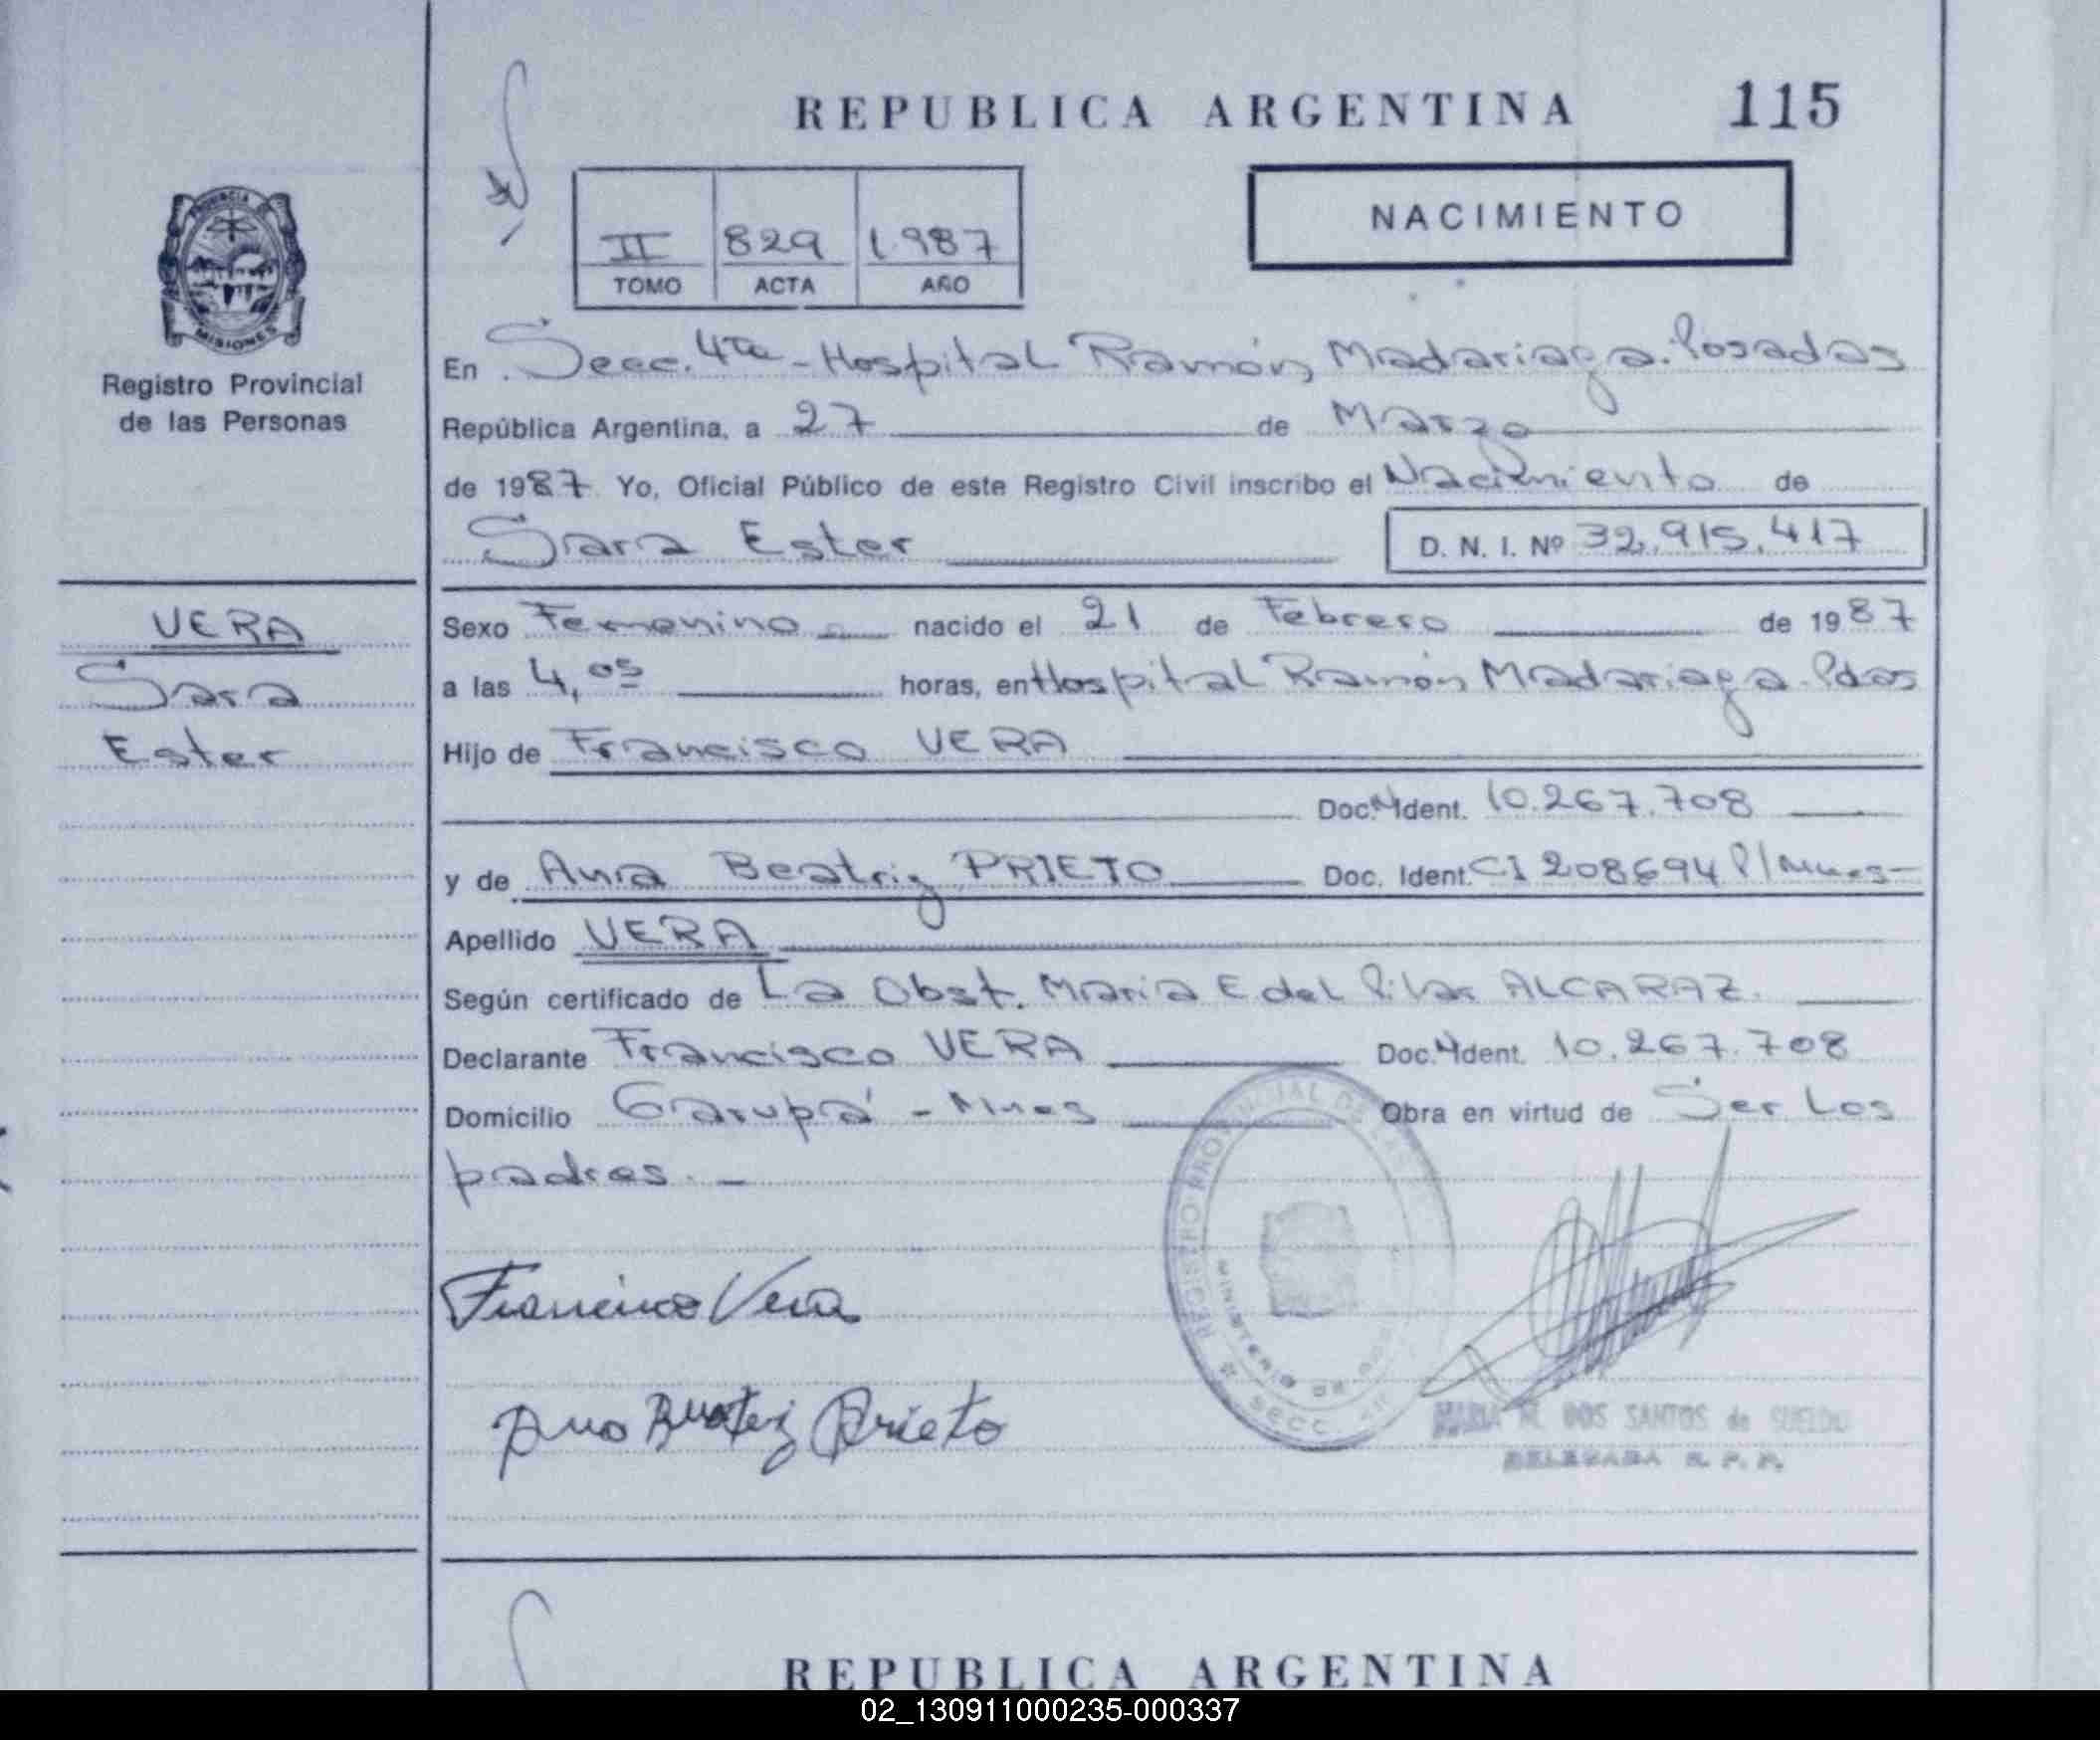 REPUBLICA ARGENTINA 115
II 829 1.987
TOMO ACTA AÑO
NACIMIENTO
PROVINCIA DE
MISIONES
Registro Provincial
de las Personas
En Secc. 4ta - Hospital Ramón Madariaga. Posadas
República Argentina, a 27 de Marzo
de 1987 Yo, Oficial Público de este Registro Civil inscribo el Nacimiento de
Sara Ester D. N. I. Nº 32.915.417
VERA
Sara
Ester
Sexo Femenino nacido el 21 de Febrero de 1987
a las 4,05 horas, en Hospital Ramón Madariaga. Pdas
Hijo de Francisco VERA
Doc. Ident. 10.267.708
y de Ana Beatriz PRIETO Doc. Ident. CI 208694 P/Mnes-
Apellido VERA
Según certificado de La Obst. Maria E del Pilar ALCARAZ.
Declarante Francisco VERA Doc. Ident. 10.267.708
Domicilio Garupá - Mnes Obra en virtud de Ser Los
padres. -
REGISTRO PROVINCIAL DE LAS
MINISTERIO DE
SECC.
Francisco Vera
Ana Beatriz Prieto
MARIA M. DOS SANTOS de SUELDO
DELEGADA R. P. P.
REPUBLICA ARGENTINA
02_130911000235-000337